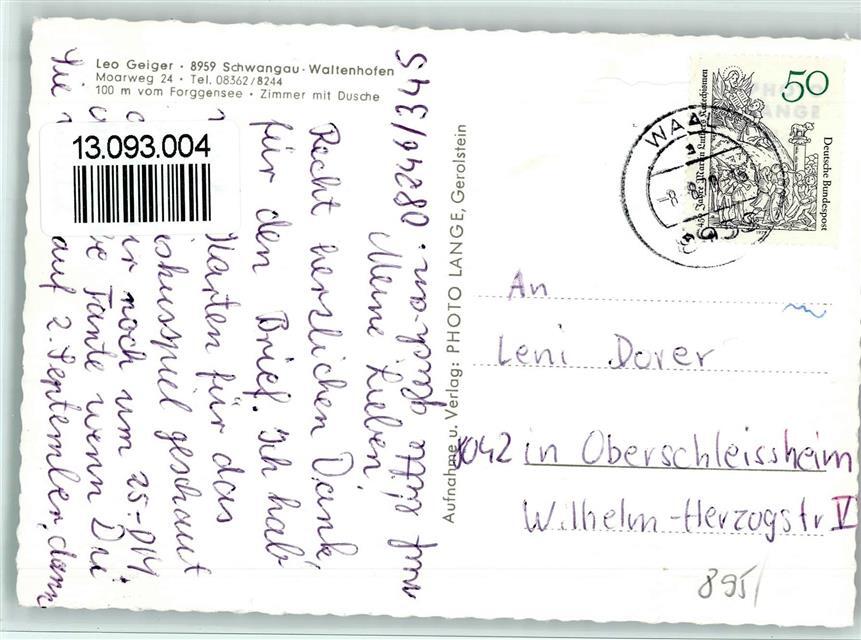 Leo Geiger · 8959 Schwangau-Waltenhofen
Moarweg 24 · Tel. 08362/8244
100 m vom Forggensee · Zimmer mit Dusche
13.093.004
Meine Lieben,
Recht herzlichen Dank,
für den Brief. Ich hab
Karten für das
geschaut
noch um 25.-DM.
Tante wenn Du
auf 2. September, dann
Sie
ruf bitte 08246/345
Aufnahme u. Verlag: PHOTO LANGE, Gerolstein
50
Deutsche Bundespost
450 Jahre Martin Luthers Katechismen
1979
WAA
PHOTO
LANGE
An
Leni Dorer
8042 in Oberschleissheim
Wilhelm-Herzogstr V
895/